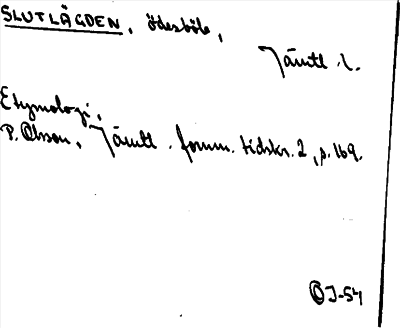 SLUTLÄGDEN, ödesböle,
Jämtl. l.
Etymologi,
P. Olsson, Jämtl. fornm. tidskr. 2, s. 169.
OJ-54